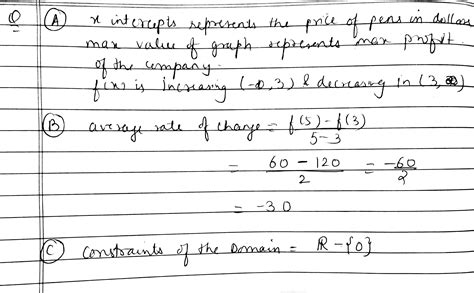 Q (A) x intercepts represents the price of pens in dollar
max value of graph represents max profit
of the company.
f(x) is increasing (-∞,3) & decreasing in (3,∞)
(B) average rate of change = f(5) - f(3)
5-3
= 60 - 120 = -60
2 2
= -30
(C) constraints of the Domain = R - {0}